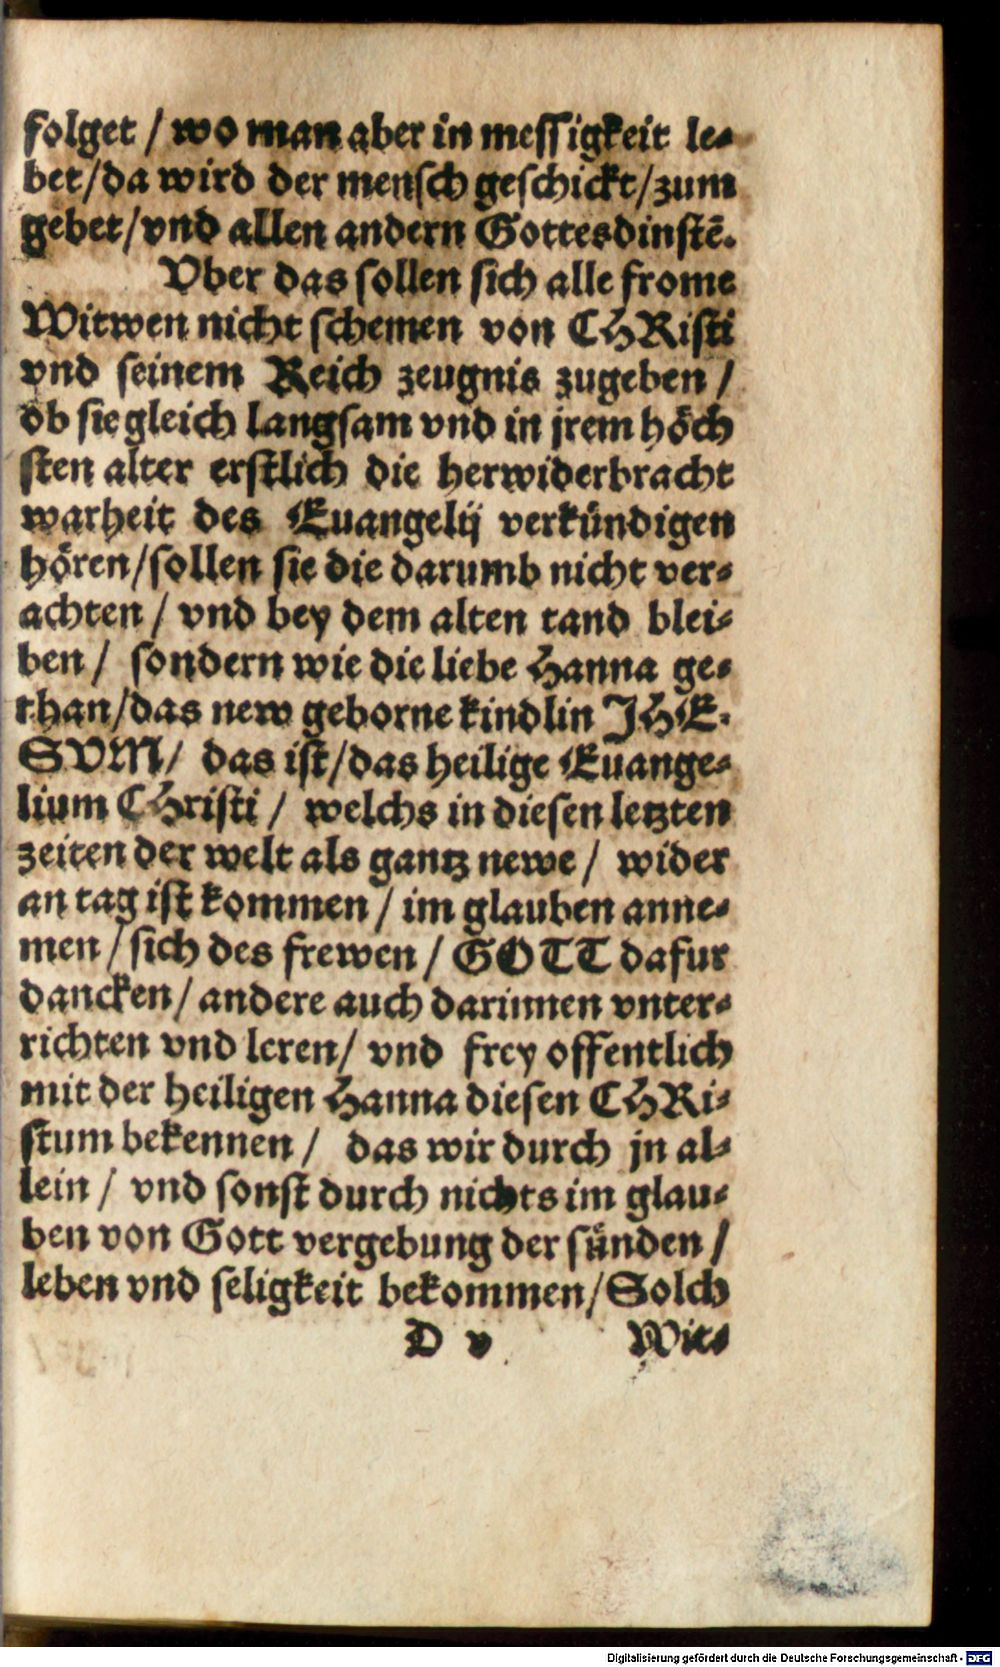 folget / wo man aber in messigkeit le⸗
bet/da wird der mensch geschickt/zum
gebet/vnd allen andern Gottesdinstē.
Vber das sollen sich alle frome
Witwen nicht schemen von CHRisti
vnd seinem Reich zeugnis zugeben /
ob sie gleich langsam vnd in jrem höch
sten alter erstlich die herwiderbracht
warheit des Euangelij verkündigen
hören/sollen sie die darumb nicht ver⸗
achten / vnd bey dem alten tand blei⸗
ben / sondern wie die liebe Hanna ge⸗
than/das new geborne kindlin JHE⸗
SVM/ das ist/das heilige Euange⸗
lium CHristi / welchs in diesen letzten
zeiten der welt als gantz newe / wider
an tag ist kommen / im glauben anne⸗
men / sich des frewen / GOTT dafur
dancken/ andere auch darinnen vnter⸗
richten vnd leren/ vnd frey offentlich
mit der heiligen Hanna diesen CHRi⸗
stum bekennen / das wir durch jn al⸗
lein / vnd sonst durch nichts im glau⸗
ben von Gott vergebung der sünden /
leben vnd seligkeit bekommen/Solch
D v Wit⸗
Digitalisierung gefördert durch die Deutsche Forschungsgemeinschaft - DFG